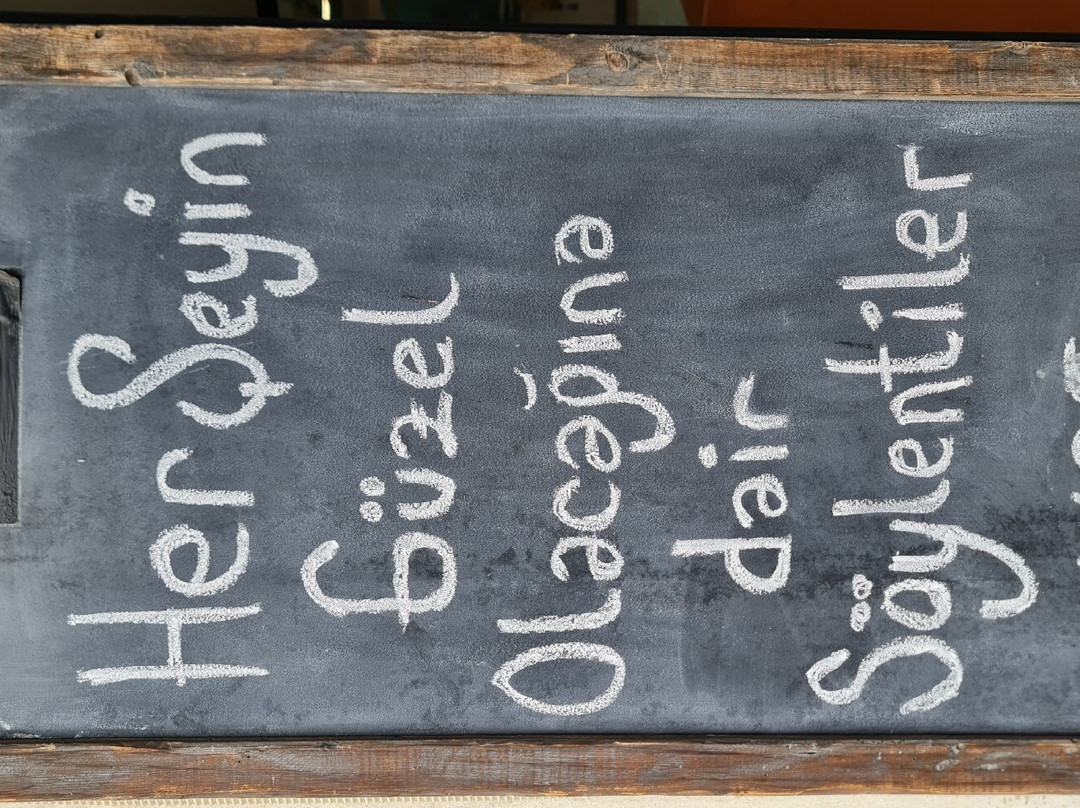 Her Şeyin
Güzel
Olacağına
dair
Söylentiler